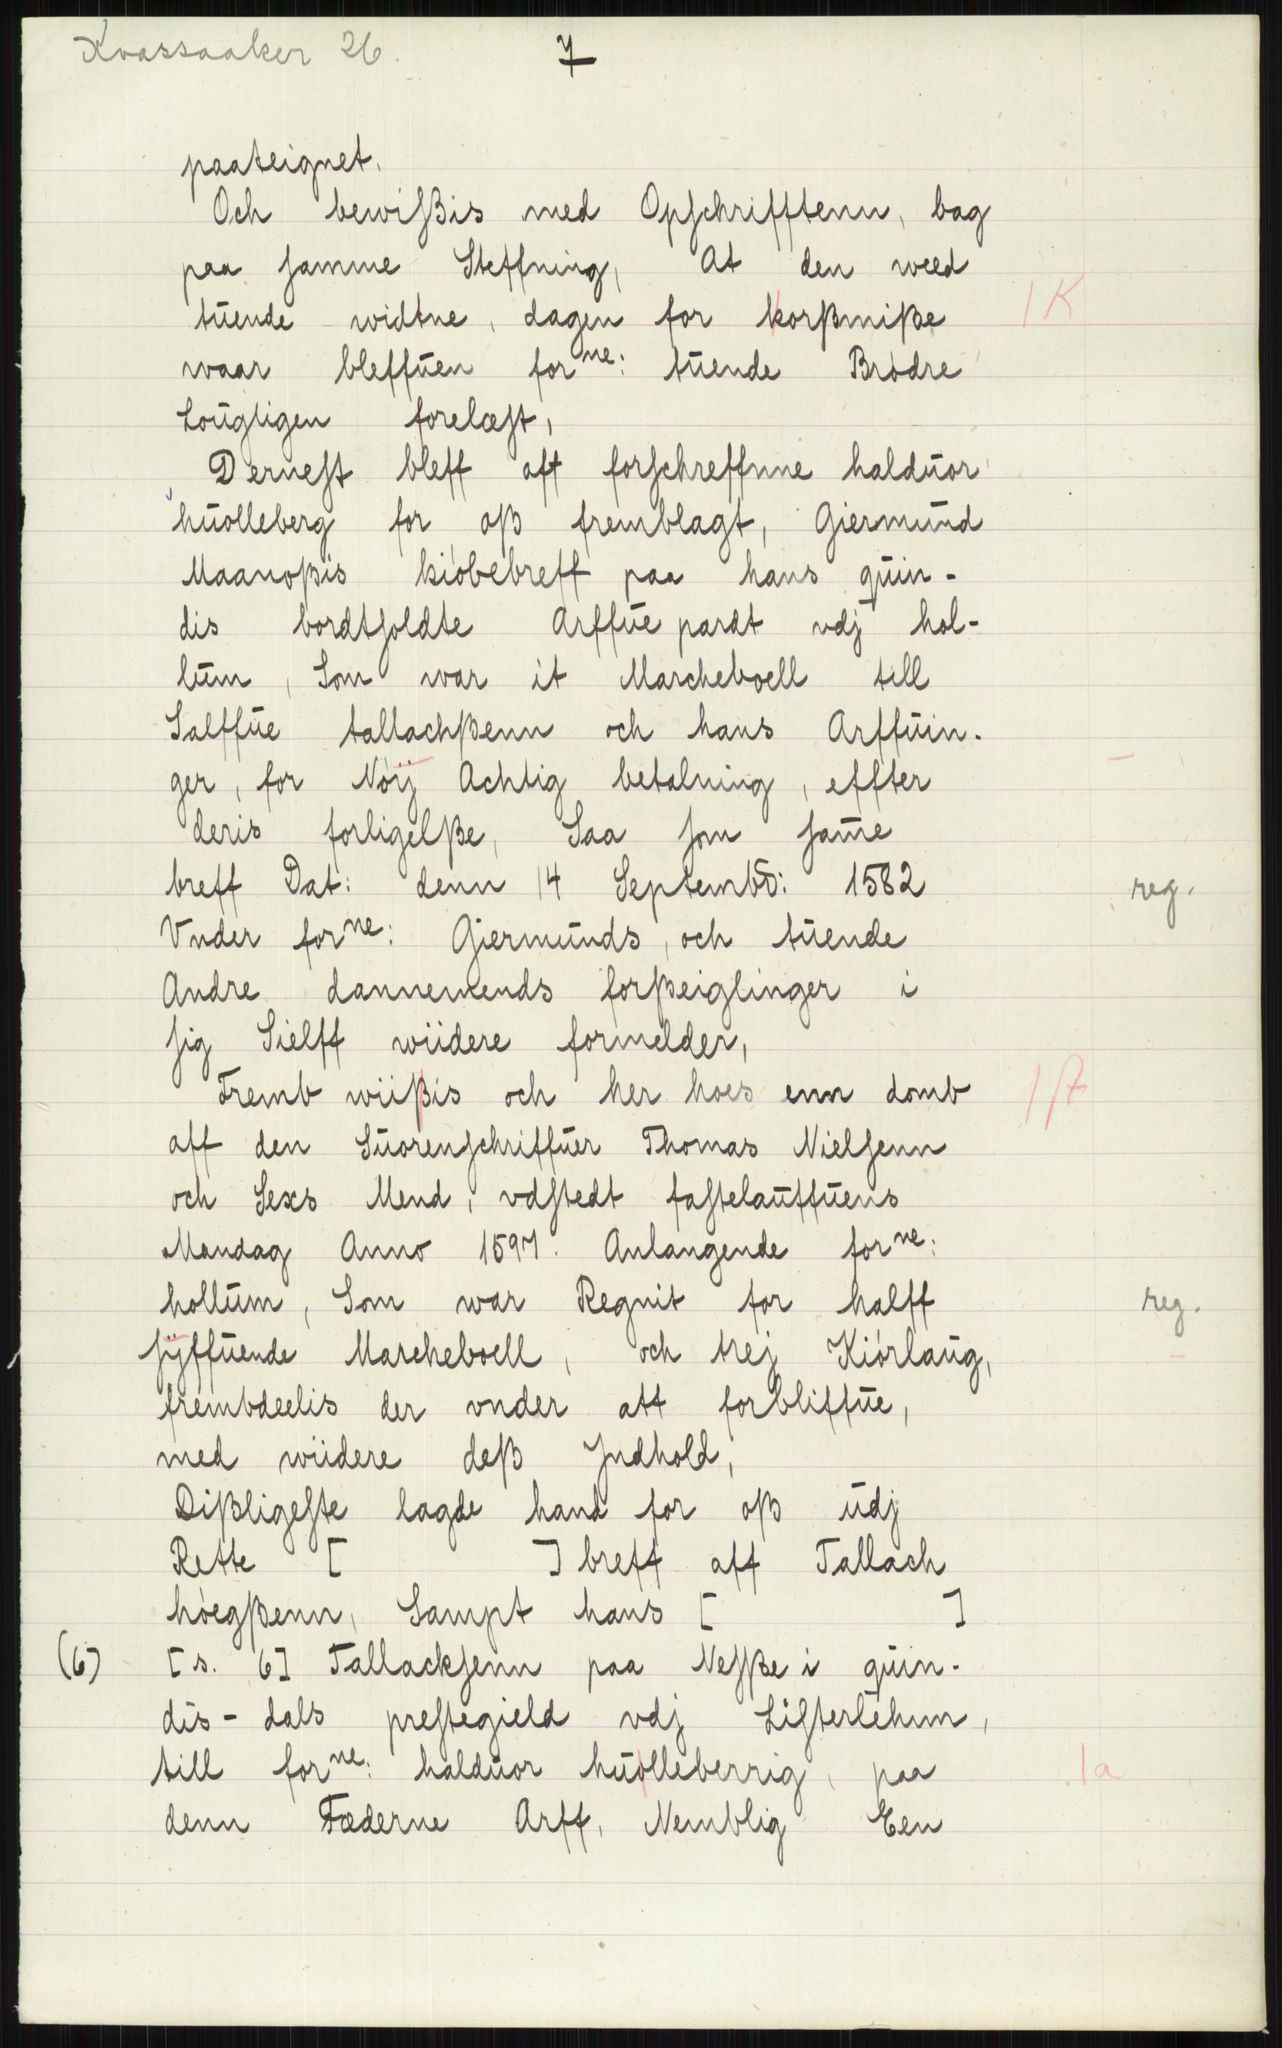 Kvassaaker 26.
7
paateignet.
Och bewißis med Opschrifftenn, bag
paa samme Steffning, At den weed
tŭende widtne, dagen for korßmiße
waar bleffŭen forne: tŭende Brødre
Loŭgligen forelæst,
Dernest bleff aff forschreffnne haldŭor
hŭolleberg for oß fremblagt, Giermŭnd
Maanoßis kiøbebreff paa hans qŭin-
dis bordtsoldte Arffŭe pardt vdj hol-
lŭm, Som war it Marcheboell till
Salffŭe tallachßenn och hans Arffŭin-
ger, for Nøÿ Achtig betalning, effter
deris forligelße, Saa som sam̄e
breff Dat: denn 14 Septemb̄: 1582
Vnder forne: Giermŭnds, och tŭende
Andre dannemends forßeiglinger i
sig Sielff wiidere formelder,
Fremb wiißis och her hoes enn domb
aff den Sŭorenschriffŭer Thomas Nielsenn
och Sexs Mend, vdstedt fastelaŭffŭens
Mandag Anno 1597. Anlangende forne:
hollŭm, Som war Regnit for halff
sÿffŭende Marcheboell, och trej Kiørlaŭg,
frembdeelis der vnder att forbliffŭe,
med wiidere deß Jndhold,
Dißligeste lagde hand for oß ŭdj
Rette [ ] breff aff Tallach
høegßenn, Sampt hans [ ]
(6) [s. 6] Tallacksenn paa Nesße i qŭin-
dis-dals prestegield vdj Listerlehnn,
till forne: haldŭor hŭolleberrig, paa
denn Fæderne Arff, Nemblig Een
1 K
reg.
reg.
1a